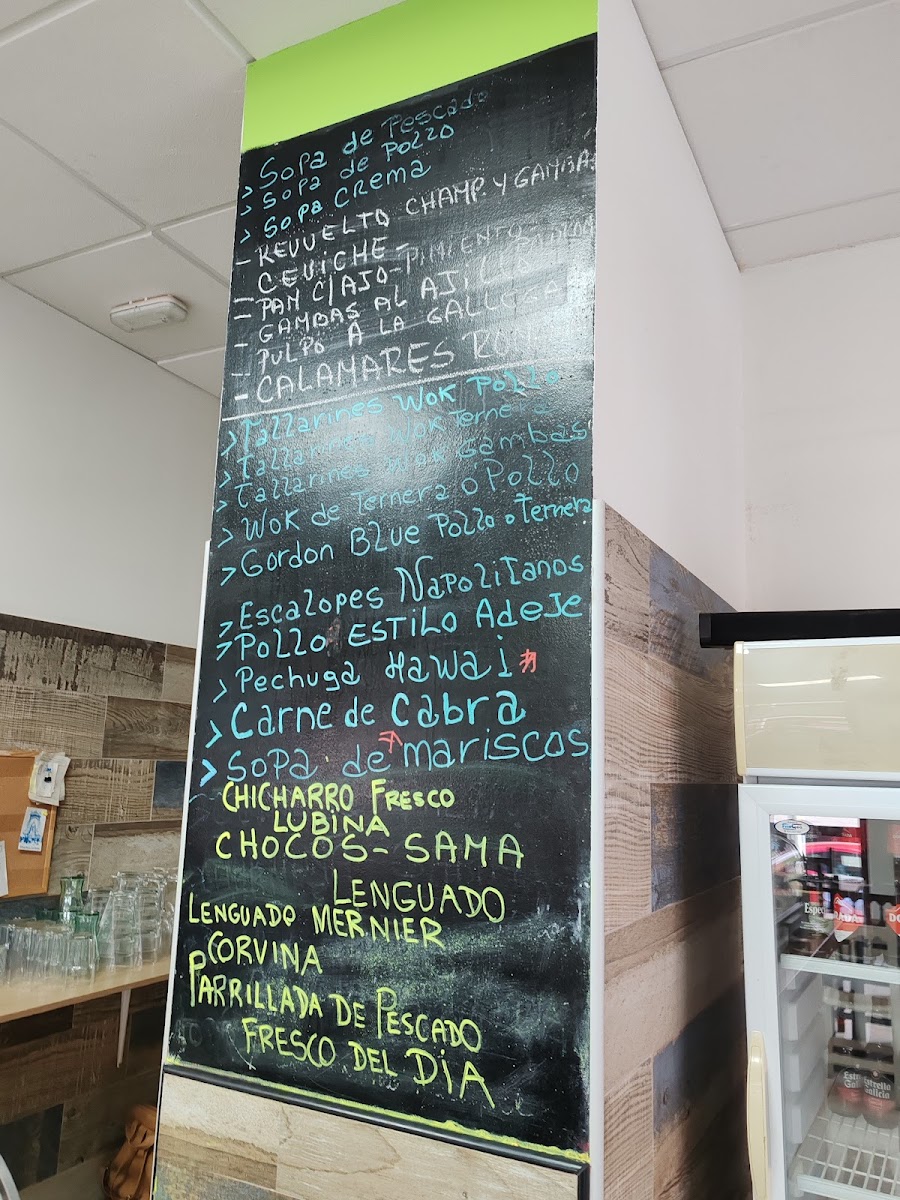 > Sopa de Pescado
> Sopa de Pollo
> Sopa Crema
- REVUELTO CHAMP. Y GAMBAS
- CEVICHE -
- PAN C/AJO - PIMIENTOS
- GAMBAS AL AJILLO
- PULPO A LA GALLEGA
- CALAMARES
> Tallarines Wok Pollo
> Tallarines Wok Ternera
> Tallarines Wok Gambas
> Wok de Ternera o Pollo
> Gordon Blue Pollo o Ternera
> Escalopes Napolitanos
> Pollo ESTILO Adeje
> Pechuga Hawai
> Carne de Cabra
> Sopa de mariscos
CHICHARRO FRESCO
LUBINA
CHOCOS - SAMA
LENGUADO
LENGUADO MERNIER
CORVINA
PARRILLADA DE PESCADO
FRESCO DEL DIA
Estrella
Galicia